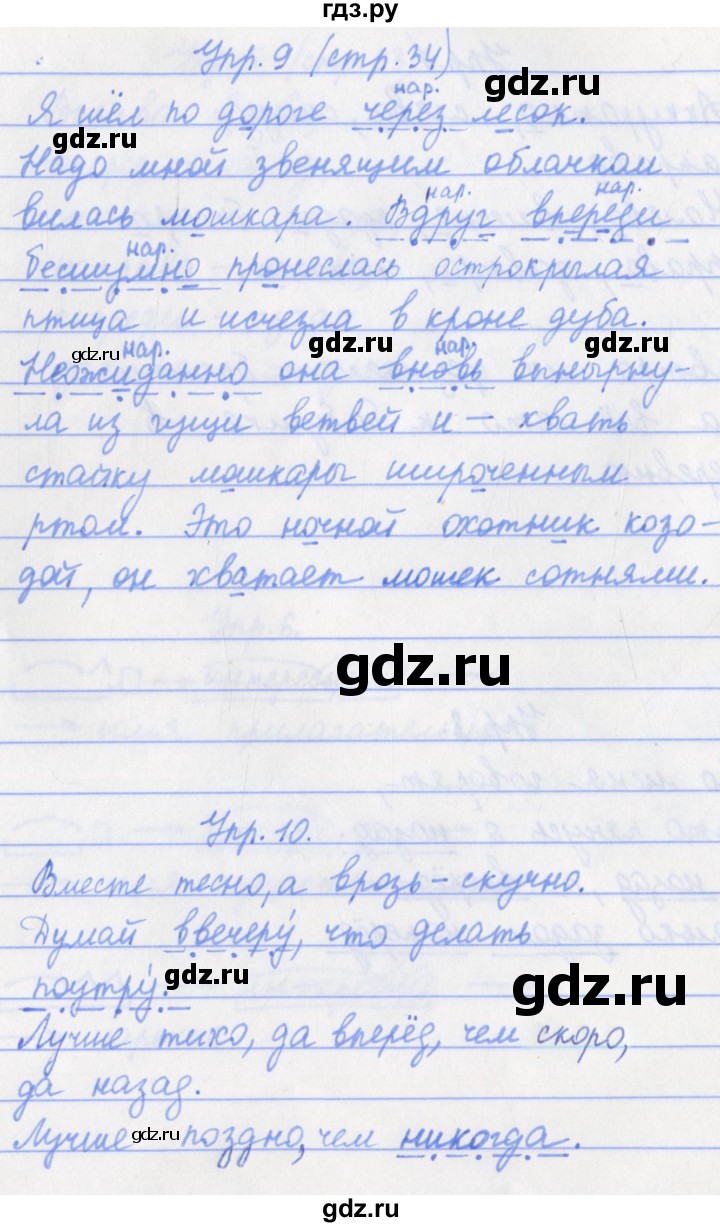 гдз.ру
Упр. 9 (стр. 34)
нар.
gdz.ru
Я шёл по дороге через лесок.
gdz.ru
Надо мной звенящим облачком
нар. нар.
вилась мошкара. Вдруг впереди
нар.
бесшумно пронеслась острокрылая
птица и исчезла в кроне дуба.
gdz.ru gdz.ru gdz.ru
нар. нар.
Неожиданно она вновь вынырну-
ла из гущи ветвей и – хвать
стайку мошкары широченным
ртом. Это ночной охотник козо-
дой, он хватает мошек сотнями.
gdz.ru
Упр. 10.
Вместе тесно, а врозь – скучно.
Думай ввечеру́, что делать
gdz.ru gdz.ru
поутру́.
Лучше тихо, да вперёд, чем скоро,
да назад.
Лучше поздно, чем никогда.
gdz.ru
gdz.ru